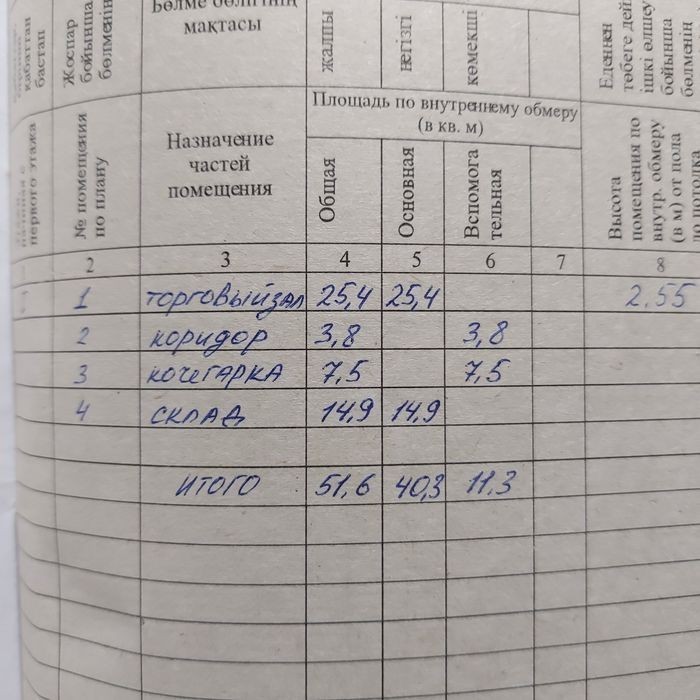 қабаттан
бастап
Жоспар
бойынша
бөлменің
Бөлме бөлігінің
мақтасы
жалпы
негізгі
көмекші
Еденнен
төбеге дей
ішкі өлшеу
бойынша
бөлменің
первого этажа
№ помещения
по плану
Назначение
частей
помещения
Площадь по внутреннему обмеру
(в кв. м)
Общая
Основная
Вспомога
тельная
Высота
помещения по
внутр. обмеру
(в м) от пола
до потолка
2 3 4 5 6 7 8
1 торговый зал 25,4 25,4 2.55
2 коридор 3,8 3,8
3 кочегарка 7,5 7,5
4 склад 14,9 14,9
итого 51,6 40,3 11.3